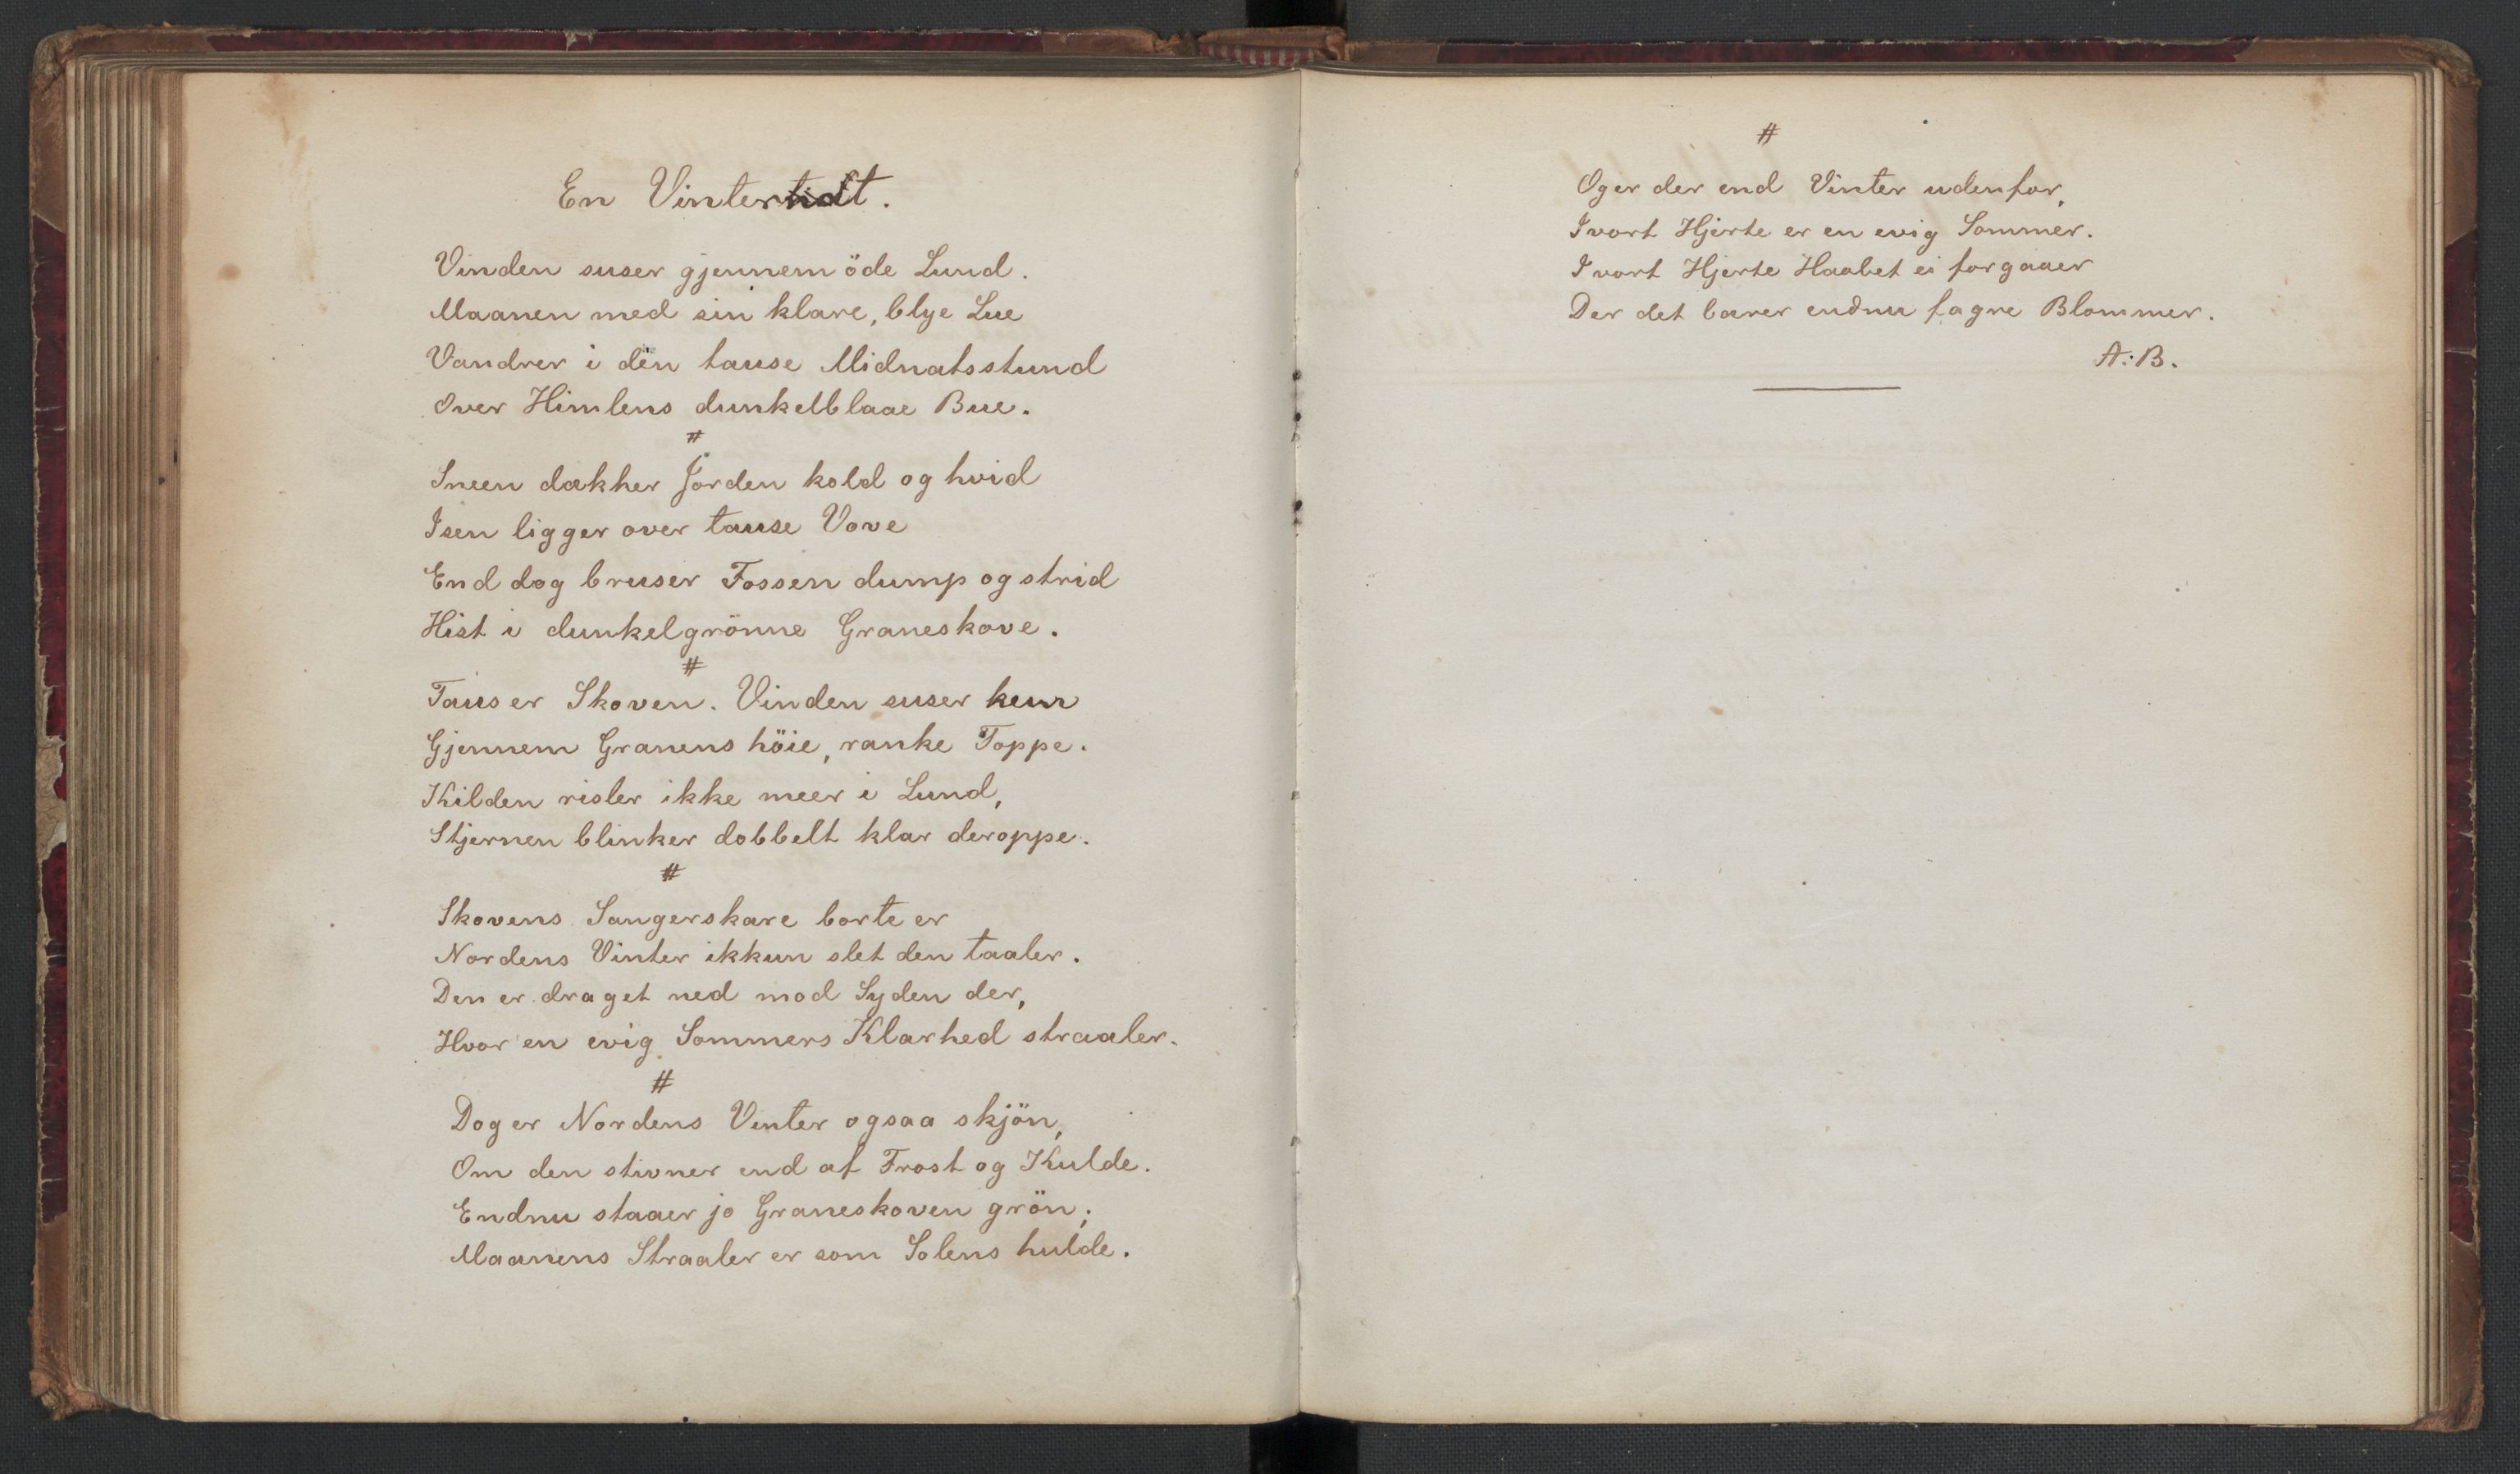 En Vintertidt.
Vinden suser gjennem öde Lund.
Maanen med sin klare, blye Lue
Vandrer i den tause Midnatsstund
Over Himlens dunkelblaae Bue.
#
Sneen dækker Jorden kold og hvid
Isen ligger over tause Vove
End dog bruser Fossen dump og strid
Hist i dunkelgrönne Graneskove.
#
Taus er Skoven. Vinden suser kun
Gjennem Granens höie, ranke Toppe.
Kilden risler ikke meer i Lund,
Stjernen blinker dobbelt klar deroppe.
#
Skovens Sangerskare borte er
Nordens Vinter ikkun slet den taaler.
Den er draget ned mod Syden der,
Hvor en evig Sommers Klarhed straaler.
#
Dog er Nordens Vinter ogsaa skjön,
Om den stivner end af Frost og Kulde.
Endnu staaer jo Graneskoven grön;
Maanens Straaler er som Solens hulde.
#
Og er der end Vinter udenfor,
I vort Hjerte er en evig Sommer.
I vort Hjerte Haabet ei forgaaer
Der det bærer endnu fagre Blommer.
A. B.